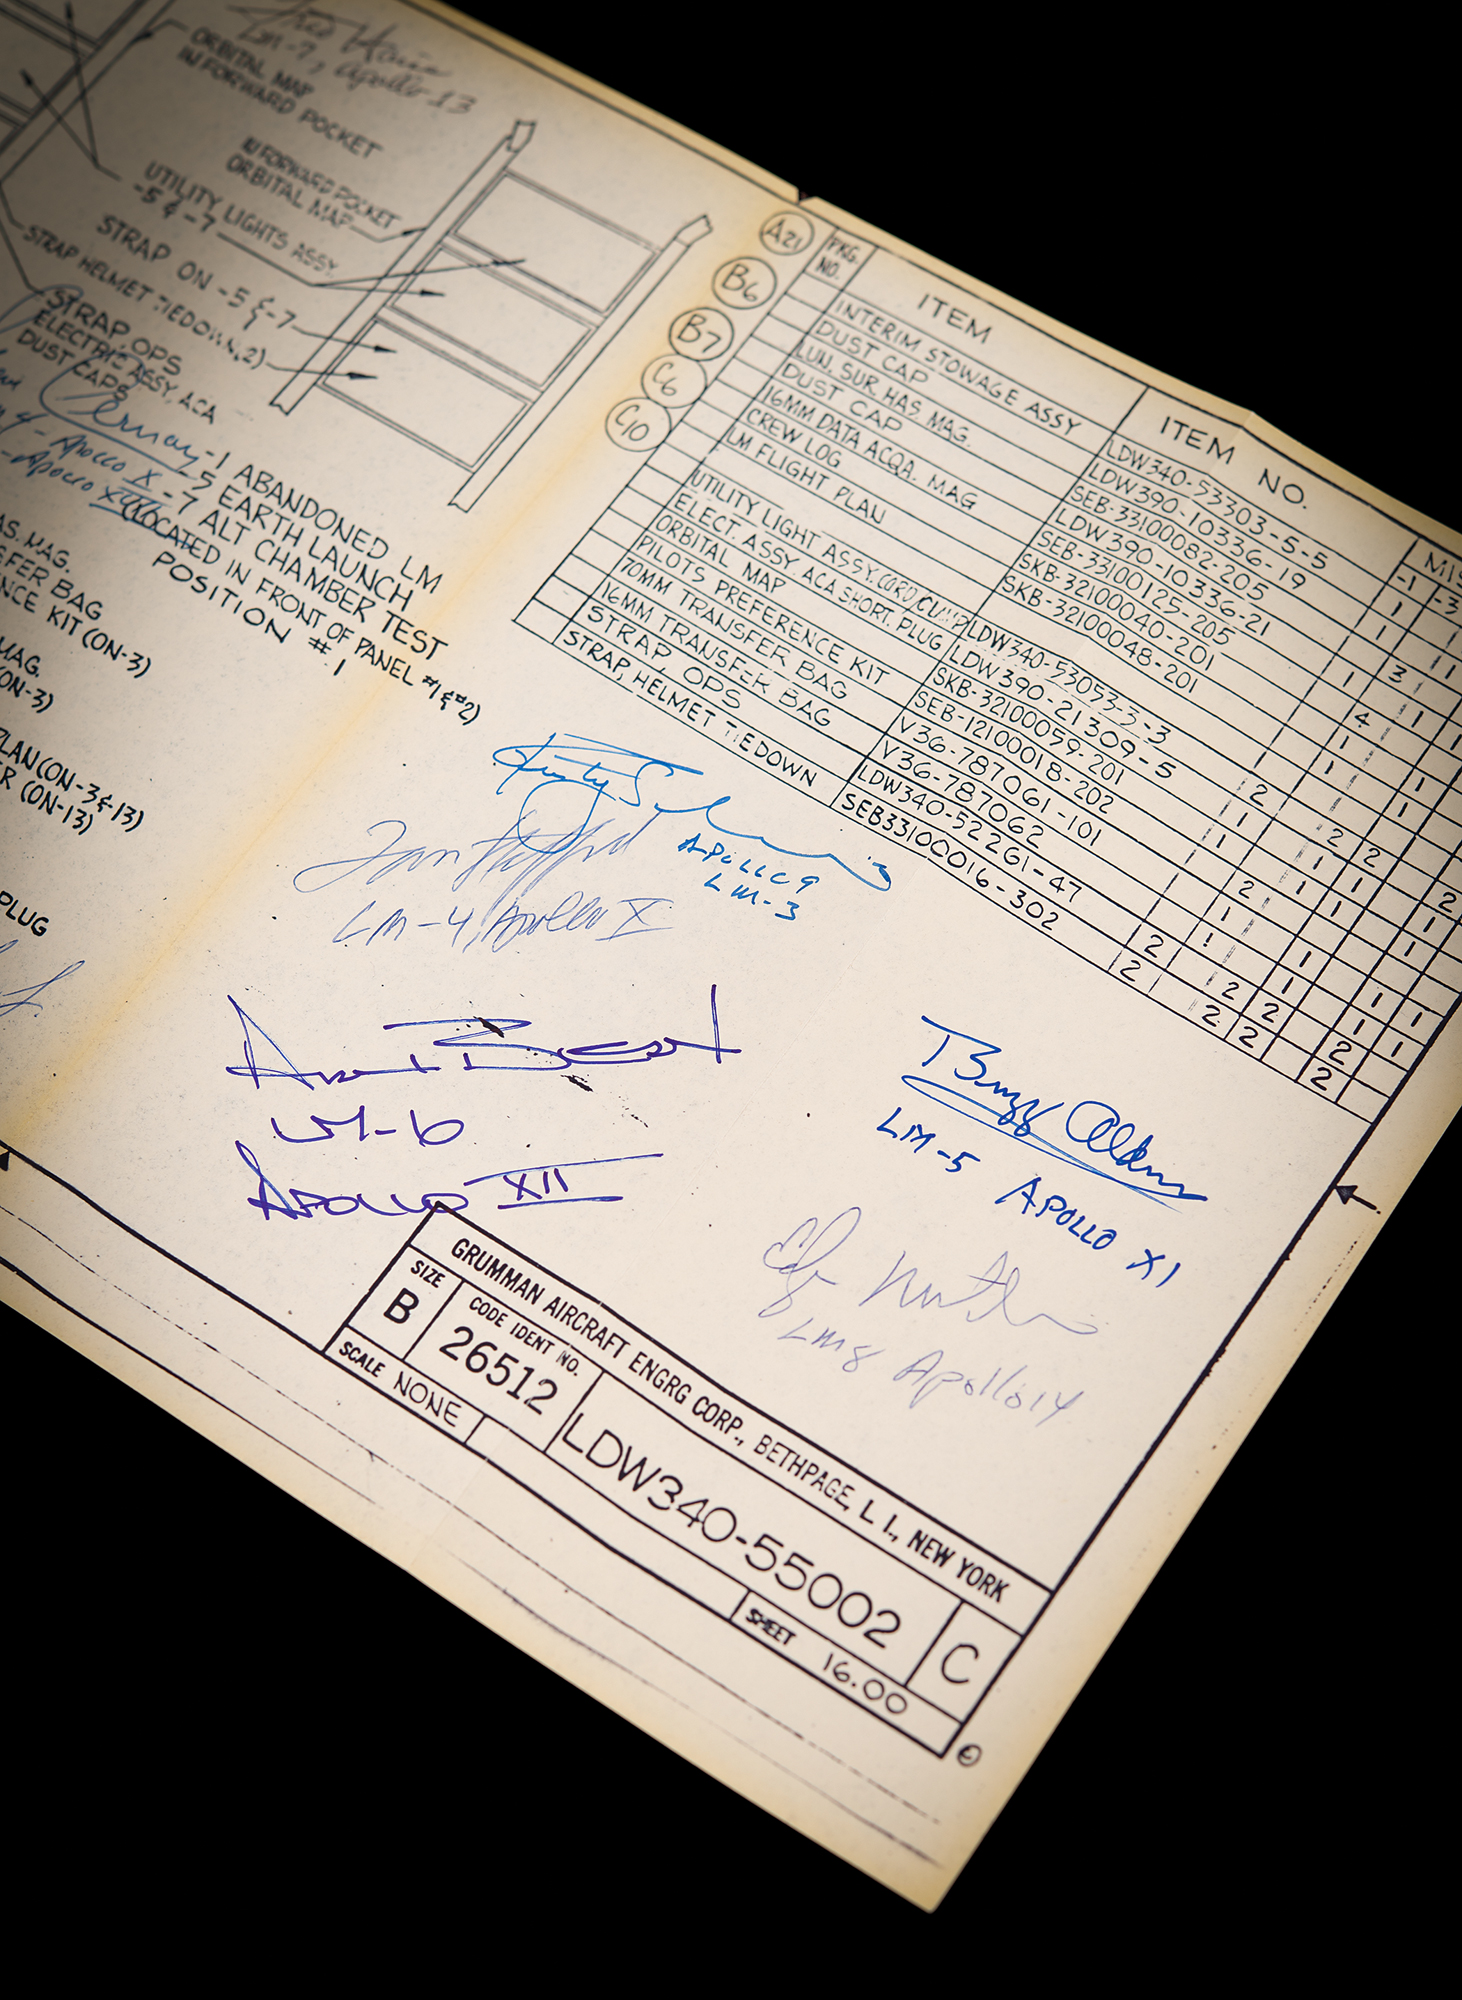 Fred Haise
LM-7, Apollo-13
ORBITAL MAP
IN FORWARD POCKET
IN FORWARD POCKET
ORBITAL MAP
UTILITY LIGHTS ASSY.
-5 & -7
STRAP ON -5 & -7
STRAP HELMET TIEDOWN(2)
STRAP, OPS
ELECTRIC ASSY, ACA
DUST CAPS
Cernan
4-Apollo X
-Apollo XVII
-1 ABANDONED LM
-5 EARTH LAUNCH
-7 ALT CHAMBER TEST
(LOCATED IN FRONT OF PANEL #1 & #2)
POSITION #1
AS. MAG.
SFER BAG
NCE KIT (ON-3)
MAG.
(ON-3)
PLAN (ON-3 & 13)
ER (ON-13)
PLUG
A21
B6
B7
C6
C10
PKG. NO.
ITEM
ITEM NO.
MIS
-1 -3
INTERIM STOWAGE ASSY LDW340-53303-5-5
DUST CAP LDW390-10336-19
LUN. SUR. HAS. MAG. SEB-33100082-205
DUST CAP LDW390-10336-21
16MM DATA ACQA. MAG SEB-33100125-205
CREW LOG SKB-32100040-201
LM FLIGHT PLAN SKB-32100048-201
UTILITY LIGHT ASSY. CORD/CLMP LDW340-53053-3-3
ELECT. ASSY ACA SHORT. PLUG LDW390-21309-5
ORBITAL MAP SKB-32100059-201
PILOTS PREFERENCE KIT SEB-12100018-202
70MM TRANSFER BAG V36-787061-101
16MM TRANSFER BAG V36-787062
STRAP, OPS LDW340-52261-47
STRAP, HELMET TIEDOWN SEB33100016-302
Rusty Schweickart
APOLLO 9
LM-3
Tom Stafford
LM-4, Apollo X
Alan Bean
LM-6
APOLLO XII
Buzz Aldrin
LM-5 APOLLO XI
Edgar Mitchell
LM8 Apollo 14
GRUMMAN AIRCRAFT ENGRG CORP., BETHPAGE, L. I., NEW YORK
SIZE
B
CODE IDENT NO.
26512
LDW340-55002
C
SCALE NONE
SHEET 16.00